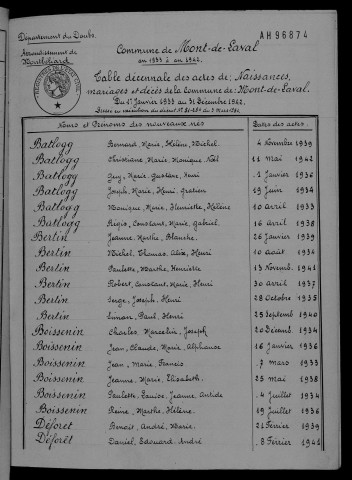 Département du Doubs.
AH96874
Arrondissement de
Montbéliard
Commune de Mont-de-Laval
en 1933 à en 1942.
Table décennale des actes de Naissances,
mariages et décès de la Commune de Mont-de-Laval.
Du 1er Janvier 1933 au 31 Décembre 1942.
Noms et Prénoms des nouveaux nés Dates des actes
Batlogg Bernard, Marie, Hélène, Michel 4 Novembre 1939
Batlogg Christiane, Marie, Monique, Noël 11 Mai 1942
Batlogg Guy, Marie, Gustave, Henri 1 Janvier 1936
Batlogg Joseph, Marie, Henri, Gratien 19 Juin 1934
Batlogg Monique, Marie, Henriette, Hélène 10 Avril 1933
Batlogg Régis, Constant, Marie, Gabriel 16 Avril 1938
Bertin Jeanne, Marthe, Blanche 26 Janvier 1939
Bertin Michel, Thomas, Aloïs, Henri 10 Août 1934
Bertin Paulette, Marthe, Henriette 13 Novemb. 1941
Bertin Robert, Constant, Marie, Henri 30 Avril 1937
Bertin Serge, Joseph, Henri 28 Octobre 1935
Bertin Simon, Paul, Henri 25 Septemb 1940
Boissenin Charles, Marcelin, Joseph 20 Décemb. 1934
Boissenin Jean, Claude, Marie, Alphonse 16 Janvier 1936
Boissenin Jean, Marie, Francis 7 Mars 1933
Boissenin Jeanne, Marie, Elisabeth 25 Mai 1938
Boissenin Paulette, Louise, Jeanne, Antide 4 Juillet 1934
Boissenin Reine, Marthe, Hélène 19 Juillet 1936
Déforêt Benoit, André, Marie 21 Février 1939
Déforêt Daniel, Edouard, André 8 Février 1941